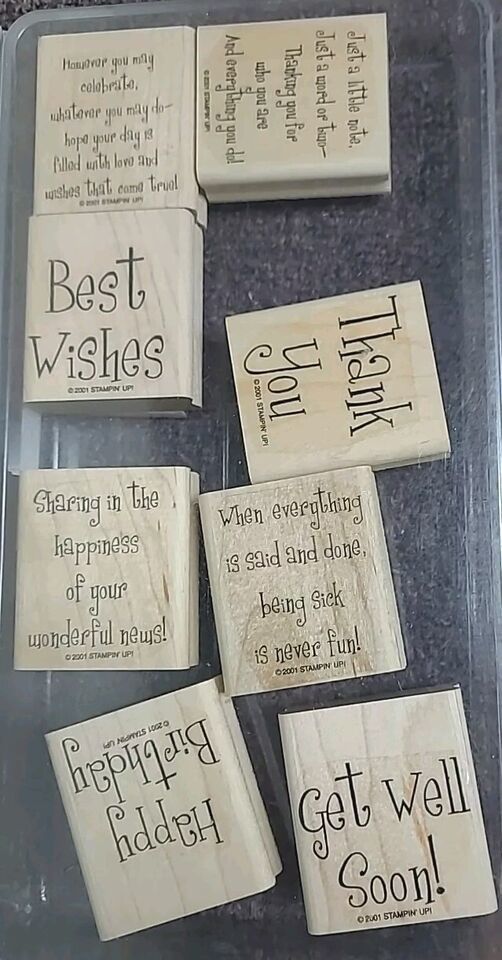 However you may
celebrate,
whatever you may do—
hope your day is
filled with love and
wishes that come true!
© 2001 STAMPIN' UP!
Just a little note,
Just a word or two—
Thanking you for
who you are
And everything you do!
© 2001 STAMPIN' UP!
Best
Wishes
© 2001 STAMPIN' UP!
Thank
You
© 2001 STAMPIN' UP!
Sharing in the
happiness
of your
wonderful news!
© 2001 STAMPIN' UP!
When everything
is said and done,
being sick
is never fun!
© 2001 STAMPIN' UP!
Happy
Birthday
© 2001 STAMPIN' UP!
Get Well
Soon!
© 2001 STAMPIN' UP!